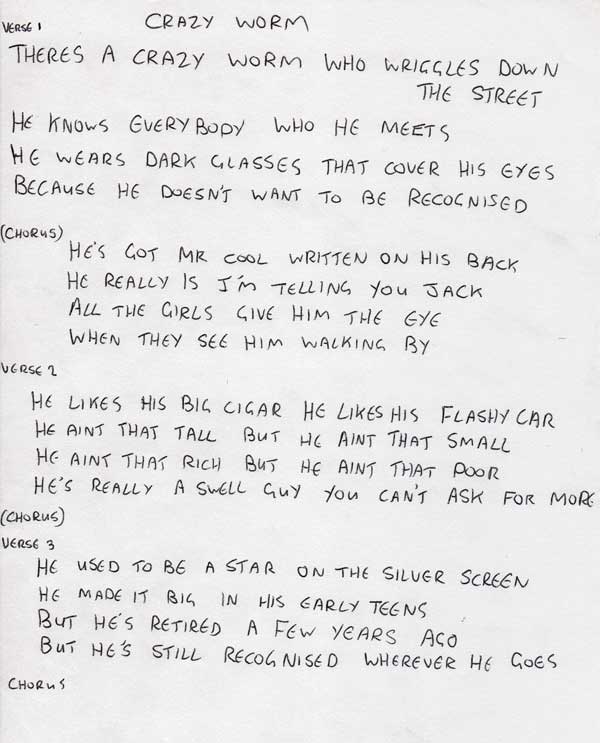 CRAZY WORM
VERSE 1
THERES A CRAZY WORM WHO WRIGGLES DOWN
THE STREET
HE KNOWS EVERYBODY WHO HE MEETS
HE WEARS DARK GLASSES THAT COVER HIS EYES
BECAUSE HE DOESN'T WANT TO BE RECOGNISED
(CHORUS)
HE'S GOT MR COOL WRITTEN ON HIS BACK
HE REALLY IS I'M TELLING YOU JACK
ALL THE GIRLS GIVE HIM THE EYE
WHEN THEY SEE HIM WALKING BY
VERSE 2
HE LIKES HIS BIG CIGAR HE LIKES HIS FLASHY CAR
HE AINT THAT TALL BUT HE AINT THAT SMALL
HE AINT THAT RICH BUT HE AINT THAT POOR
HE'S REALLY A SWELL GUY YOU CAN'T ASK FOR MORE
(CHORUS)
VERSE 3
HE USED TO BE A STAR ON THE SILVER SCREEN
HE MADE IT BIG IN HIS EARLY TEENS
BUT HE'S RETIRED A FEW YEARS AGO
BUT HE'S STILL RECOGNISED WHEREVER HE GOES
CHORUS